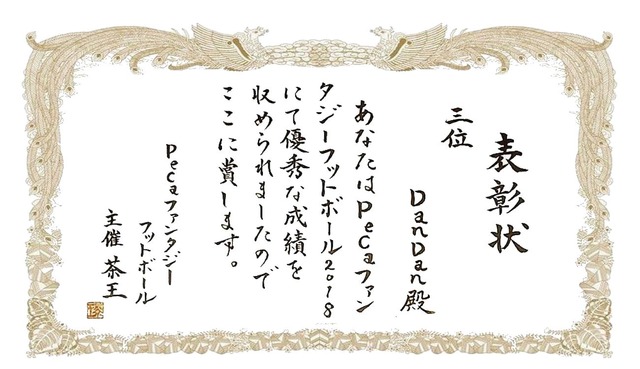 表彰状
三位
DanDan殿
あなたはPeCaファン
タジーフットボール2018
にて優秀な成績を
収められましたので
ここに賞します。
PeCaファンタジー
フットボール
主催 茶王